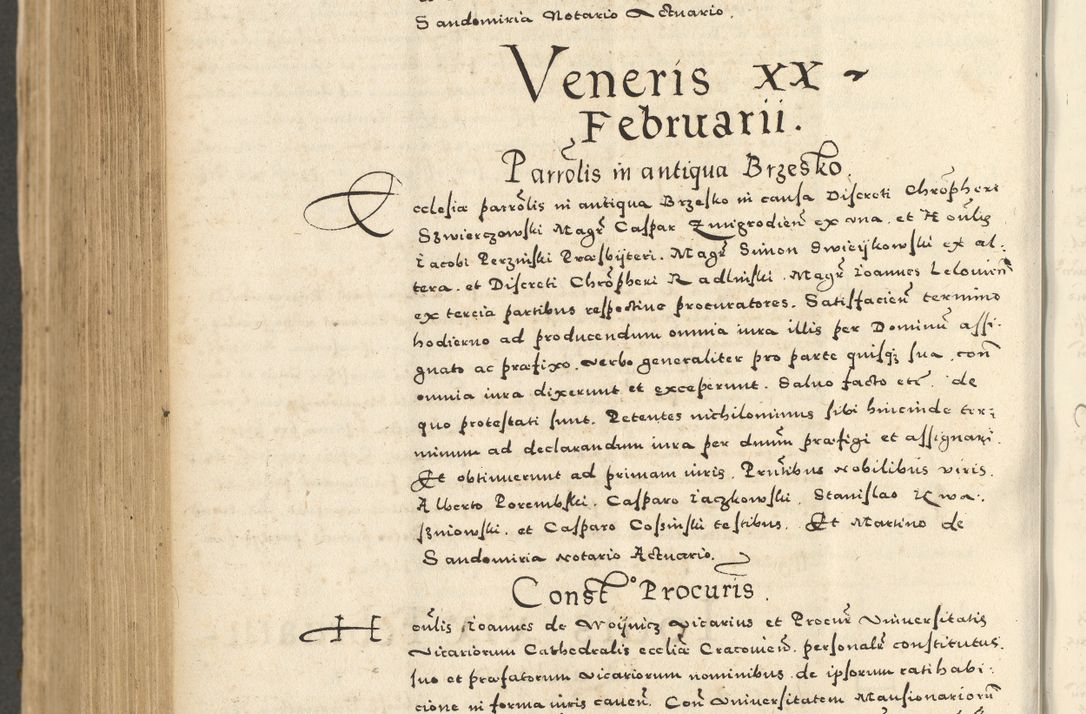 Sandomiria Notario Actuario.
Veneris XX
Februarii.
Parrolis in antiqua Brzesko.
Ecclesiæ parrolis in antiqua Brzesko in causa Discreti Chropheri
Szwierczowski Magr Caspar Zmigrodien ex una, et Honlis
Iacobi Perzinski Præsbÿteri. Magr Simon Swicijkowski ex al:
tera. et Discreti Chropheri Radlinski. Magr Ioannes Lelovien
ex tercia partibus respective procuratores. Satisfacien termino
hodierno ad producendum omnia iura illis per Dominu assi:
gnato ac præfixo. verbo generaliter pro parte quisq; sua, con
omnia iura dixerunt et exceperunt. Salvo facto etc. de
quo protestati sunt. Petentes nichilominus sibi hincinde ter:
minum ad declarandum iura per dnum præfigi et assignari.
Et obtinuerunt ad primam iuris. Pruntibus Nobilibus viris.
Alberto Porembski. Casparo Iaczkowski. Stanislao Kwa:
sniowski. et Casparo Cossinski testibus. Et Martino de
Sandomiria Notario Actuario.
Const Procuris.
Honlis Ioannes de Woÿnicz vicarius et Procur Universitatis
Vicariorum Cathedralis eccliæ Cracovien. personalr constitutus.
suo et præfatorum vicariorum nominibus. de ipsorum ratihabi:
cione in forma iuris caven. Con Universitatem Mansionarioru